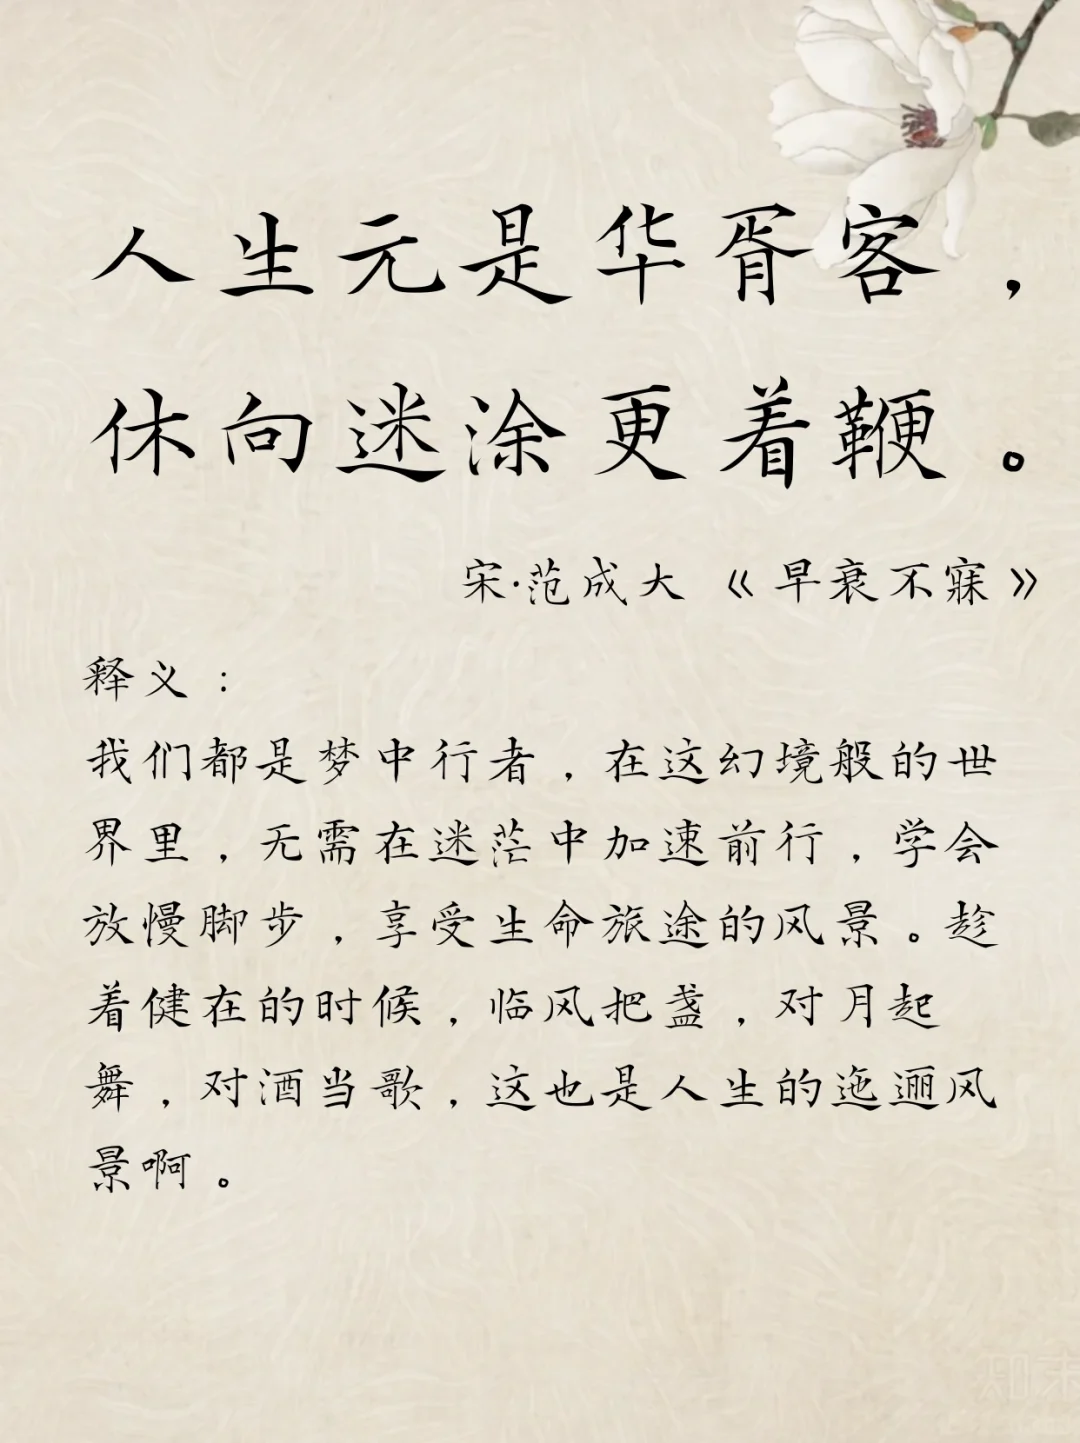 人生元是华胥客，
休向迷涂更着鞭。
宋·范成大 《早衰不寐》
释义：
我们都是梦中行者，在这幻境般的世
界里，无需在迷茫中加速前行，学会
放慢脚步，享受生命旅途的风景。趁
着健在的时候，临风把盏，对月起
舞，对酒当歌，这也是人生的迤逦风
景啊。
知末